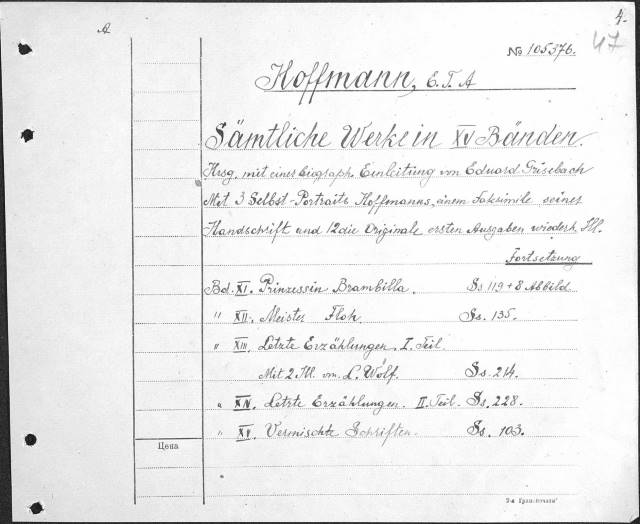 A
4.
47
№ 105376.
Hoffmann, E. T. A
Sämtliche Werke in XV Bänden.
Hrsg. mit einer biograph. Einleitung von Eduard Grisebach
Mit 3 Selbst-Portraits Hoffmanns, einem Faksimile seiner
Handschrift und 12 die Originale ersten Ausgaben wiederh. Ill.
Fortsetzung
Bd. XI. Prinzessin Brambilla. Ss 119 + 8 Abbild
" XII. Meister Floh. Ss. 135.
" XIII. Letzte Erzählungen. I. Teil.
Mit 2 Ill. von L. Wolf. Ss. 214.
" XIV. Letzte Erzählungen. II. Teil. Ss. 228.
" XV. Vermischte Schriften. Ss. 103.
Цена